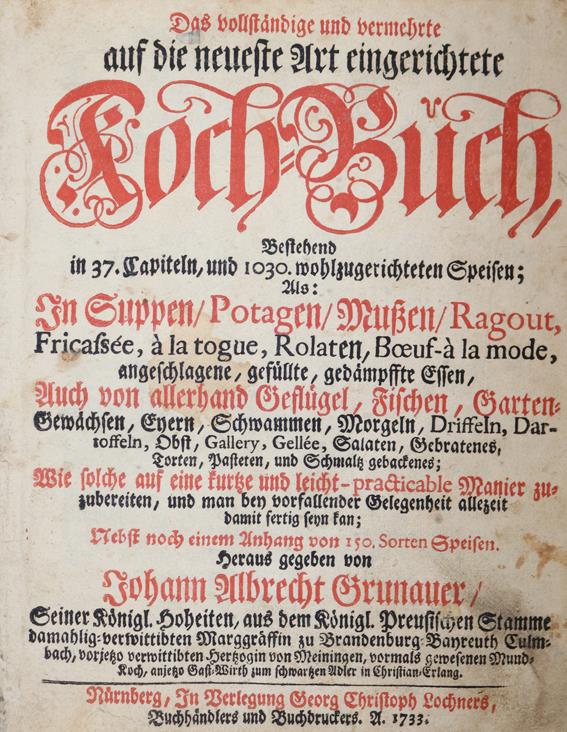 Das vollständige und vermehrte
auf die neueste Art eingerichtete
Koch-Buch,
Bestehend
in 37. Capiteln, und 1030. wohlzugerichteten Speisen;
Als:
In Suppen/ Potagen/ Mußen/ Ragout,
Fricassée, à la togue, Rolaten, Bœuf-à la mode,
angeschlagene, gefüllte, gedämpffte Essen,
Auch von allerhand Geflügel, Fischen, Garten-
Gewächsen, Eyern, Schwammen, Morgeln, Driffeln, Dar-
toffeln, Obst, Gallery, Gellée, Salaten, Gebratenes,
Torten, Pasteten, und Schmaltz gebackenes;
Wie solche auf eine kurtze und leicht-practicable Manier zu-
zubereiten, und man bey vorfallender Gelegenheit allezeit
damit fertig seyn kan;
Nebst noch einem Anhang von 150. Sorten Speisen.
Heraus gegeben von
Johann Albrecht Grunauer/
Seiner Königl. Hoheiten, aus dem Königl. Preusischen Stamme
damahlig-verwittibten Marggräffin zu Brandenburg-Bayreuth Culm-
bach, vorjetzo verwittibten Hertzogin von Meiningen, vormals gewesenen Mund-
Koch, anjetzo Gast-Wirth zum schwartzen Adler in Christian-Erlang.
Nürnberg, In Verlegung Georg Christoph Lochners,
Buchhändlers und Buchdruckers. A. 1733.